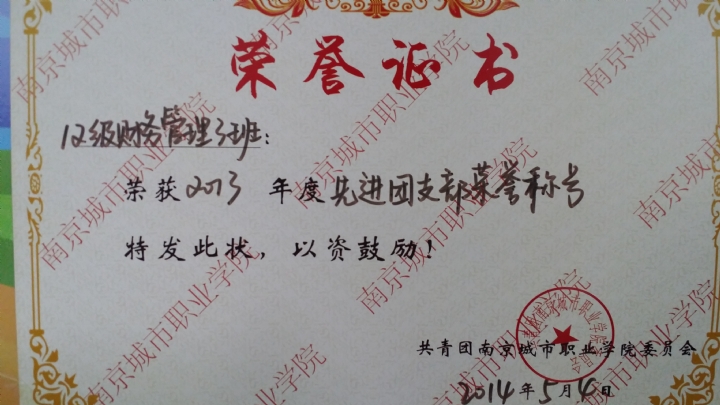 荣誉证书
12级财务管理3班：
荣获2013 年度先进团支部荣誉称号
特发此状，以资鼓励！
共青团南京城市职业学院委员会
2014年5月4日
南京城市职业学院
南京城市职业学院
南京城市职业学院
南京城市职业学院
南京城市职业学院
南京城市职业学院